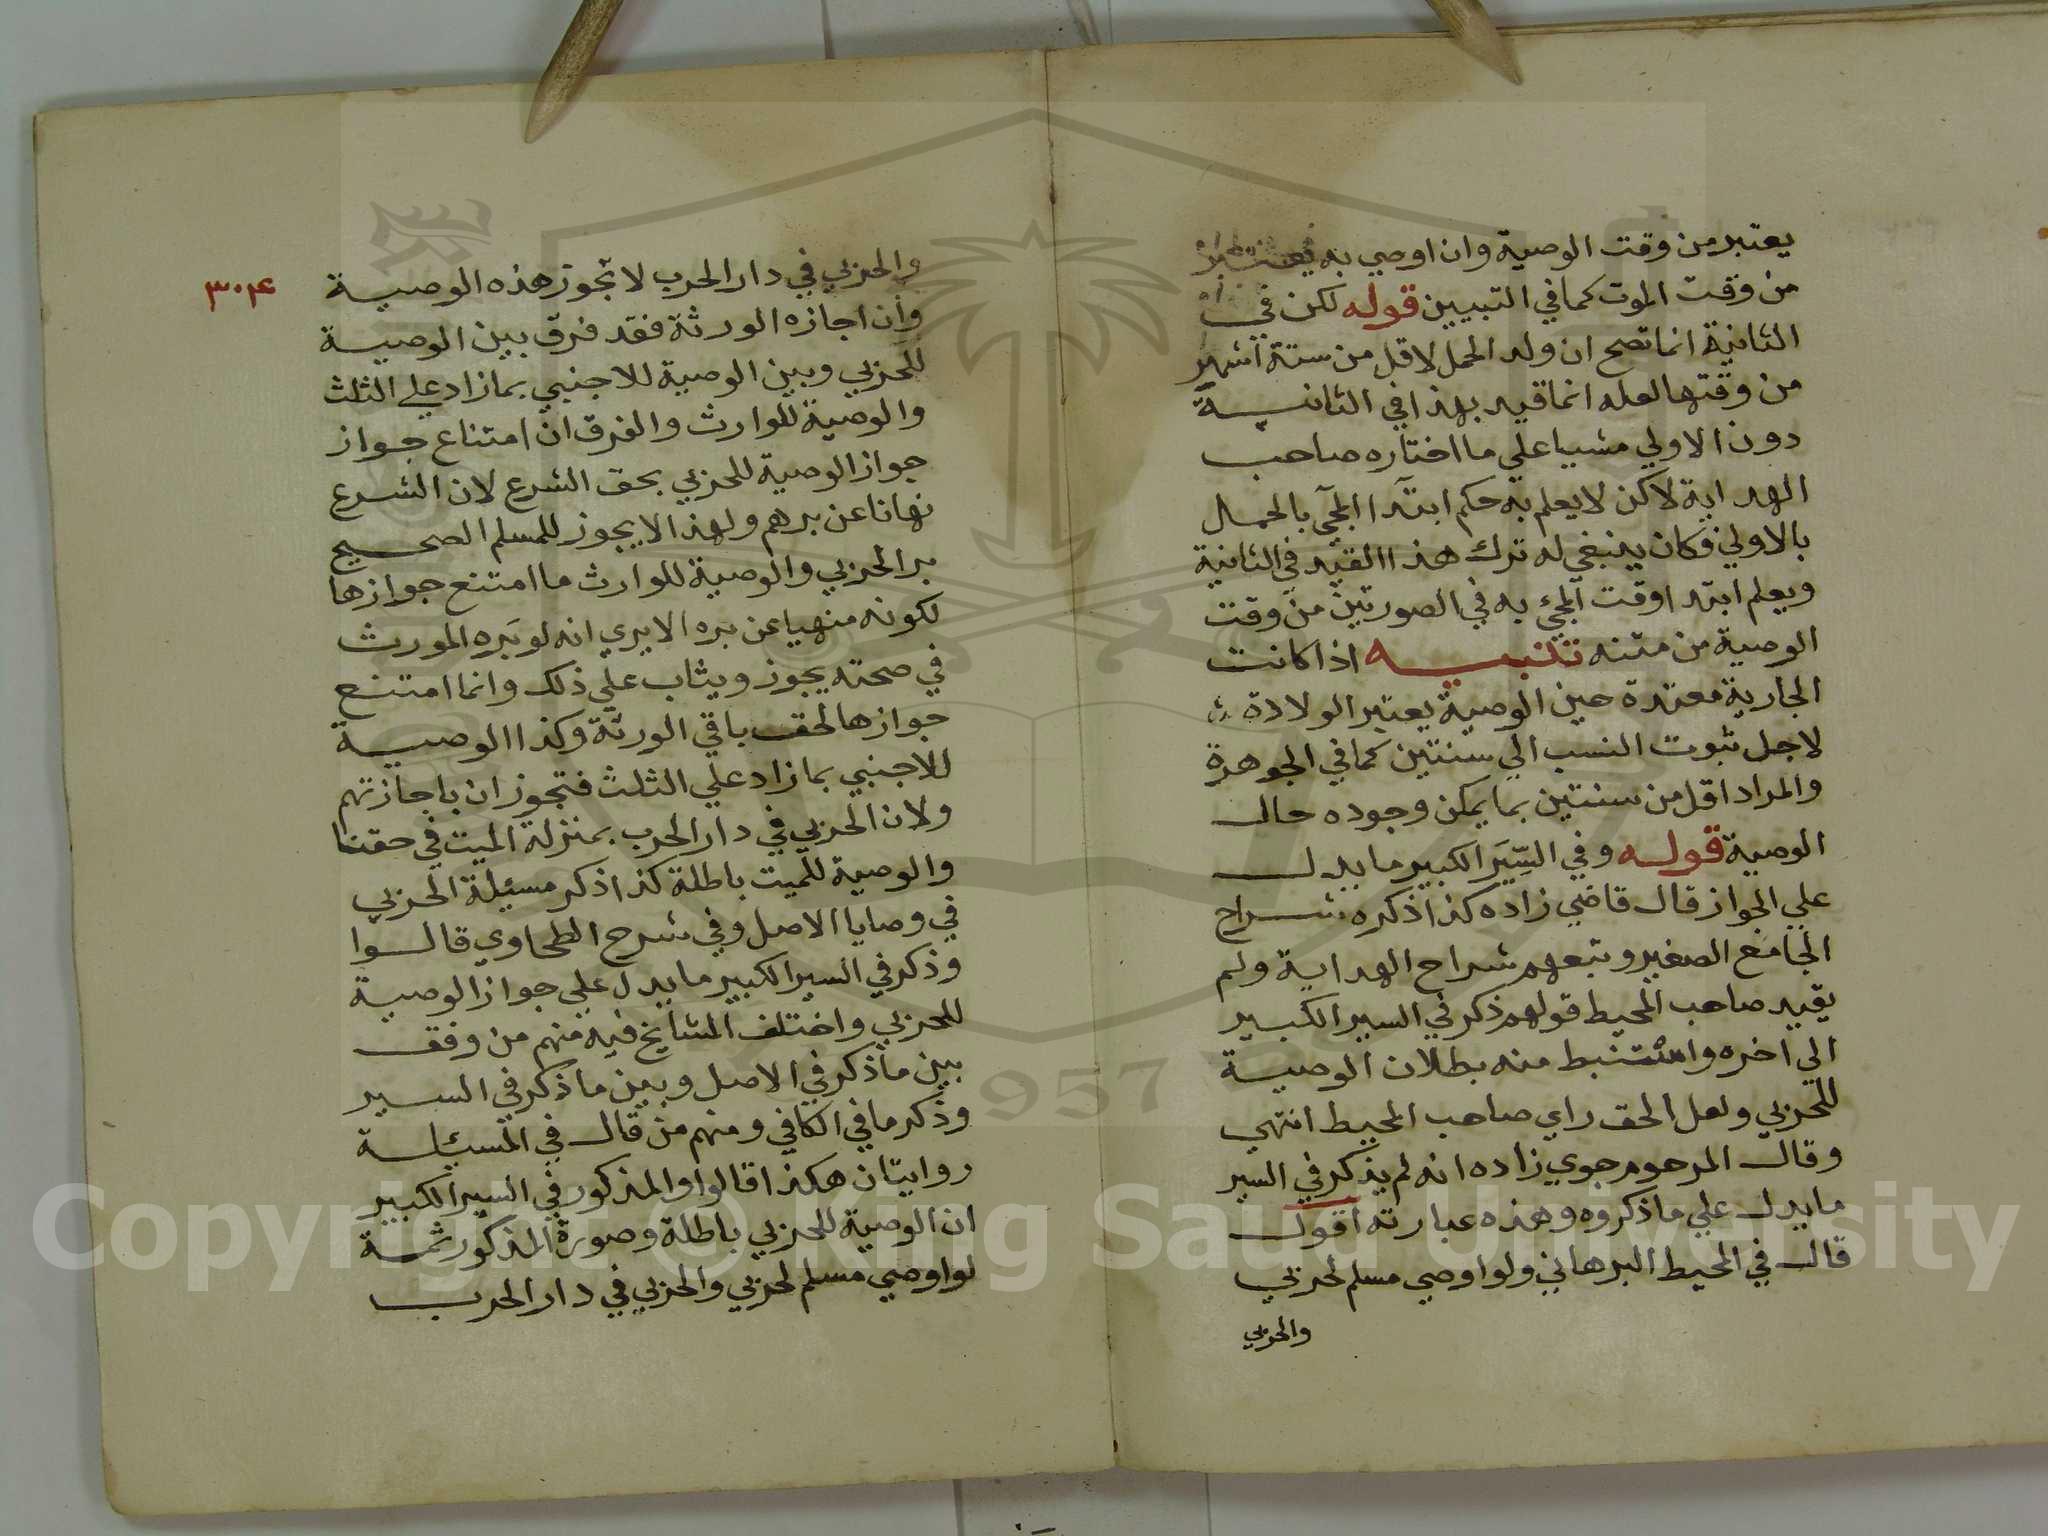 يعتبر من وقت الوصية وان اوصي به يعتبر
من وقت الموت كما في التبيين قوله لكن في
الثانية انما تصح ان ولد الحمل لاقل من ستة اشهر
من وقتها لعله انما قيد بهذا في الثانية
دون الاولي مشيا علي ما اختاره صاحب
الهداية لاكن لا يعلم به حكم ابتدا المجي بالحمل
بالاولي فكان ينبغي له ترك هذا القيد في الثانية
ويعلم ابتدا وقت المجئ به في الصورتين من وقت
الوصية من متنه تنبيه اذا كانت
الجارية معتدة حين الوصية يعتبر الولادة
لاجل ثبوت النسب الي سنتين كما في الجوهرة
والمراد اقل من سنتين بما يمكن وجوده حال
الوصية قوله وفي السير الكبير ما يدل
علي الجواز قال قاضي زاده كذا ذكره شراح
الجامع الصغير وتبعهم شراح الهداية ولم
يقيد صاحب المحيط قولهم ذكر في السير الكبير
الي اخره واستنبط منه بطلان الوصية
للحربي ولعل الحق راي صاحب المحيط انتهي
وقال المرحوم جوي زاده انه لم يذكر في السير
ما يدل علي ما ذكروه وهذه عبارته اقول
قال في المحيط البرهاني ولو اوصي مسلم لحربي
والحربي
٣٠٤
والحربي في دار الحرب لا تجوز هذه الوصية
وان اجازه الورثة فقد فرق بين الوصية
للحربي وبين الوصية للاجنبي بما زاد علي الثلث
والوصية للوارث والفرق ان امتناع جواز
جواز الوصية للحربي بحق الشرع لان الشرع
نهانا عن برهم ولهذا لا يجوز للمسلم الصحيح
بر الحربي والوصية للوارث ما امتنع جوازها
لكونه منهيا عن بره الا يري انه لو بره المورث
في صحته يجوز ويثاب علي ذلك وانما امتنع
جوازها لحق باقي الورثة وكذا الوصية
للاجنبي بما زاد علي الثلث فتجوز ان باجازتهم
ولان الحربي في دار الحرب بمنزلة الميت في حقنا
والوصية للميت باطلة كذا ذكر مسئلة الحربي
في وصايا الاصل وفي شرح الطحاوي قالوا
وذكر في السير الكبير ما يدل علي جواز الوصية
للحربي واختلف المشايخ فيه منهم من وفق
بين ما ذكر في الاصل وبين ما ذكر في السير
وذكر ما في الكافي ومنهم من قال في المسئلة
روايتان هكذا قالوا والمذكور في السير الكبير
ان الوصية للحربي باطلة وصورة المذكور ثمة
لو اوصي مسلم لحربي والحربي في دار الحرب
Copyright © King Saud University
1957